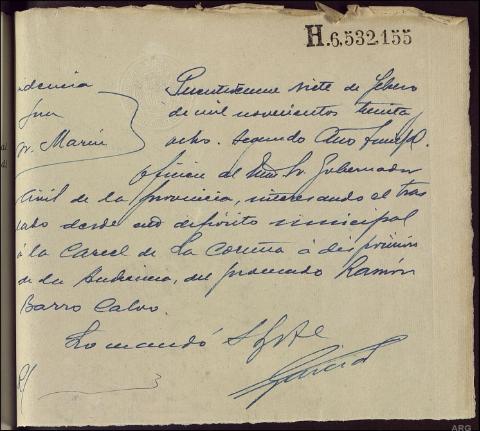 H.6.532.155
idencia
Juez
Sr. Marín
Puentedeume siete de febrero
de mil novecientos treinta y
ocho. Segundo Año Triunfal.
Oficiese al Ilmo Sr. Gobernador
Civil de la provincia, interesando el tras
lado desde este depósito municipal
a la Carcel de La Coruña á disposición
de la Audiencia, del procesado Ramón
Barro Calvo.
Lo mandó S Sª
ARG